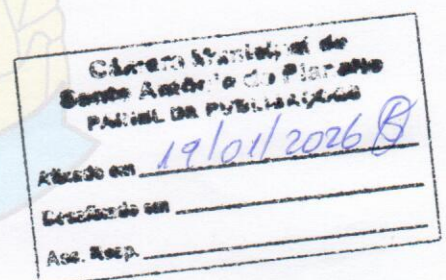 Câmara Municipal de
Santo Antônio do Planalto
PAINEL DE PUBLICAÇÕES
Afixado em 19/01/2026
Desafixado em
Ass. Resp.